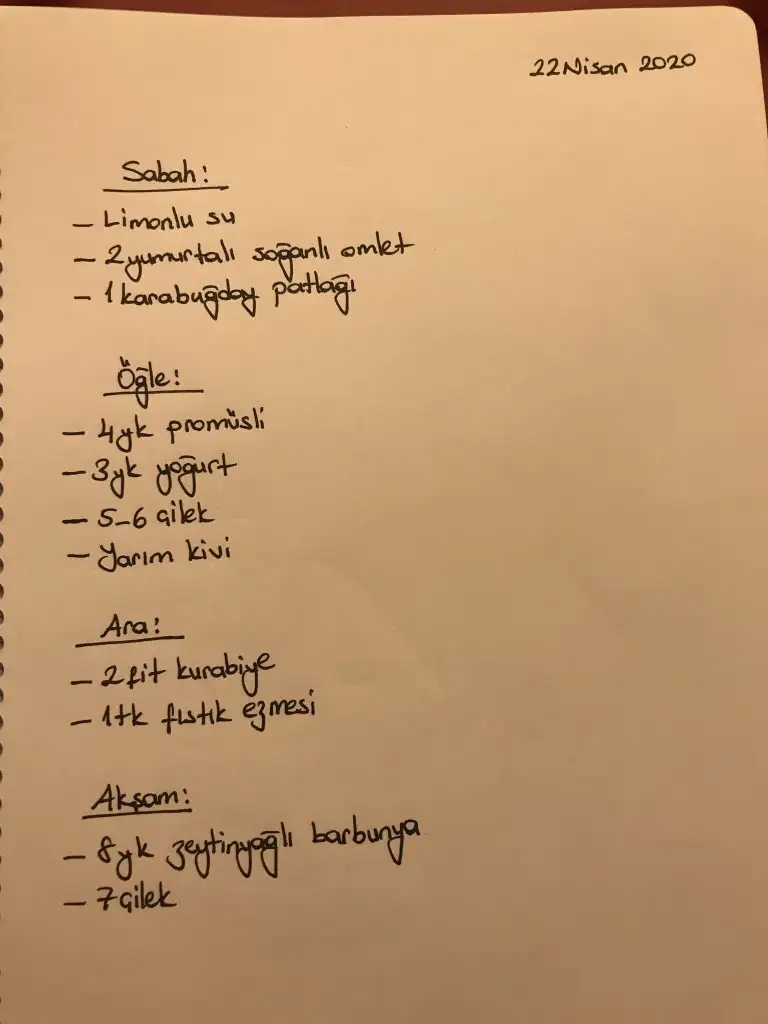 22 Nisan 2020
Sabah:
- Limonlu su
- 2 yumurtalı soğanlı omlet
- 1 karabuğday patlağı
Öğle:
- 4yk promüsli
- 3yk yoğurt
- 5-6 çilek
- Yarım kivi
Ara:
- 2 fit kurabiye
- 1tk fıstık ezmesi
Akşam:
- 8yk zeytinyağlı barbunya
- 7 çilek